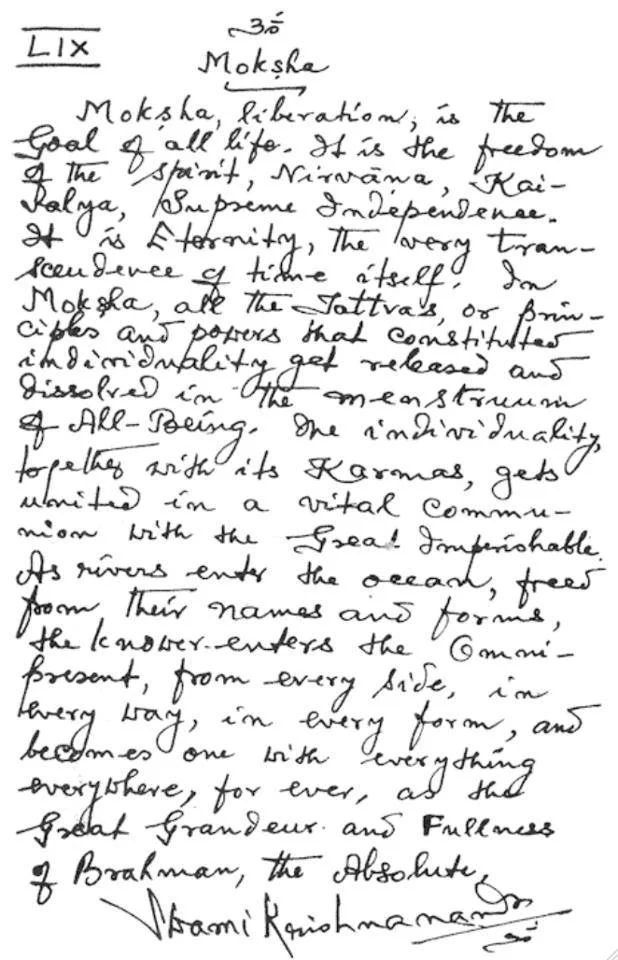 ॐ
LIX
Moksha
Moksha, liberation, is the
Goal of all life. It is the freedom
of the Spirit, Nirvāna, Kai-
valya, Supreme Independence.
It is Eternity, the very tran-
scendence of time itself. In
Moksha, all the Tattvas, or prin-
ciples and powers that constituted
individuality get released and
dissolved in the menstruum
of All-Being. The individuality,
together with its Karmas, gets
united in a vital commu-
nion with the Great Imperishable.
As rivers enter the ocean, freed
from their names and forms,
the knower enters the Omni-
present, from every side, in
every way, in every form, and
becomes one with everything
everywhere, for ever, as the
Great Grandeur and Fullness
of Brahman, the Absolute.
Swami Krishnananda
ॐ